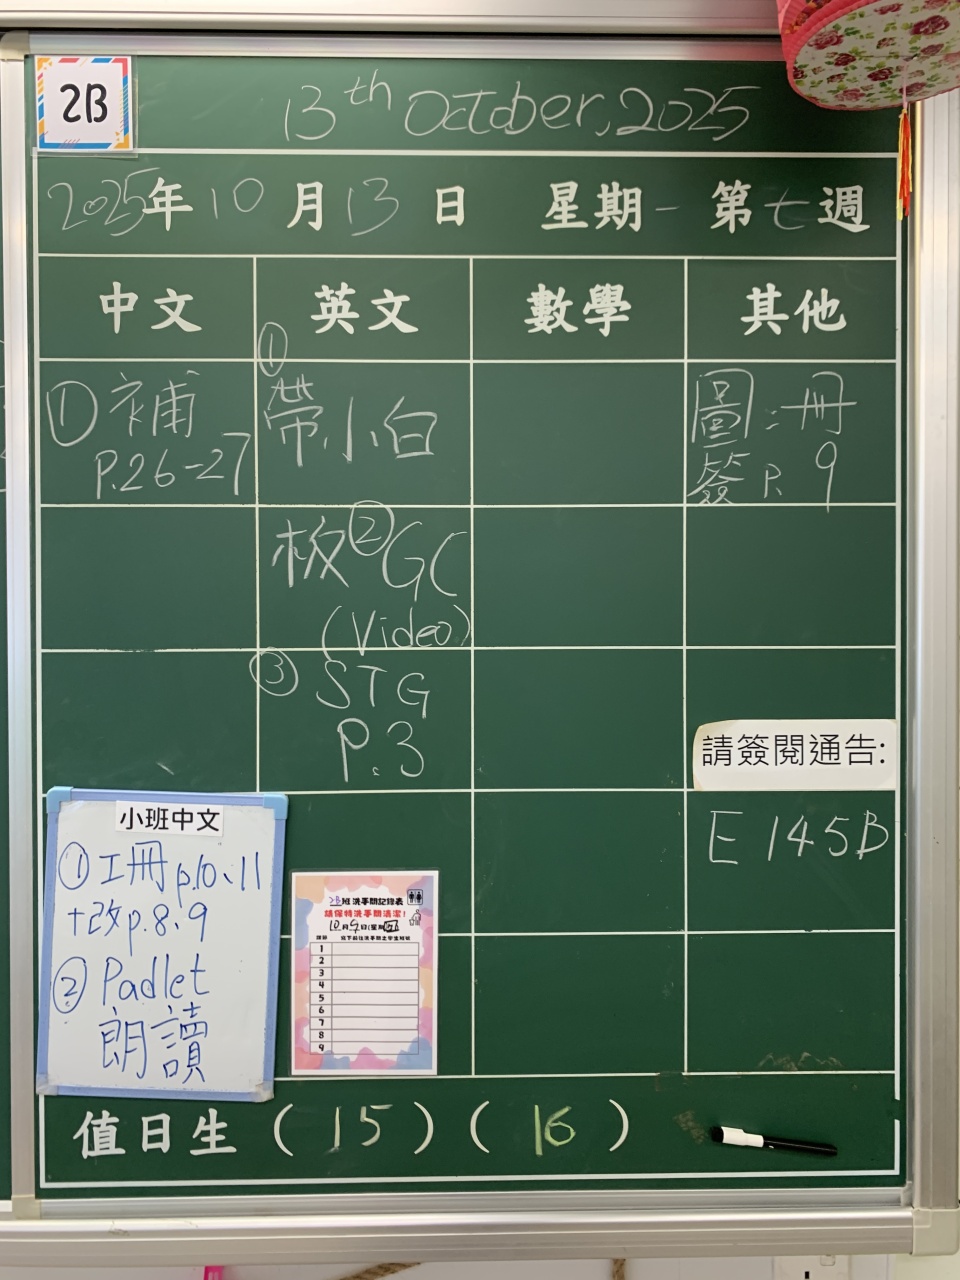 2B
13th October, 2025
2025年10月13日 星期一 第七週
中文 英文 數學 其他
① 補
P.26-27
① 帶小白
板 ② GC
(Video)
③ STG
P.3
圖:冊
簽 P. 9
請簽閱通告:
E 145B
小班中文
① 工冊 p.10、11
+改 p.8、9
② Padlet
朗讀
2B班洗手間記錄表
請保持洗手間清潔!
10月9日(星期四)
1
2
3
4
5
6
7
8
9
值日生 ( 15 ) ( 16 )